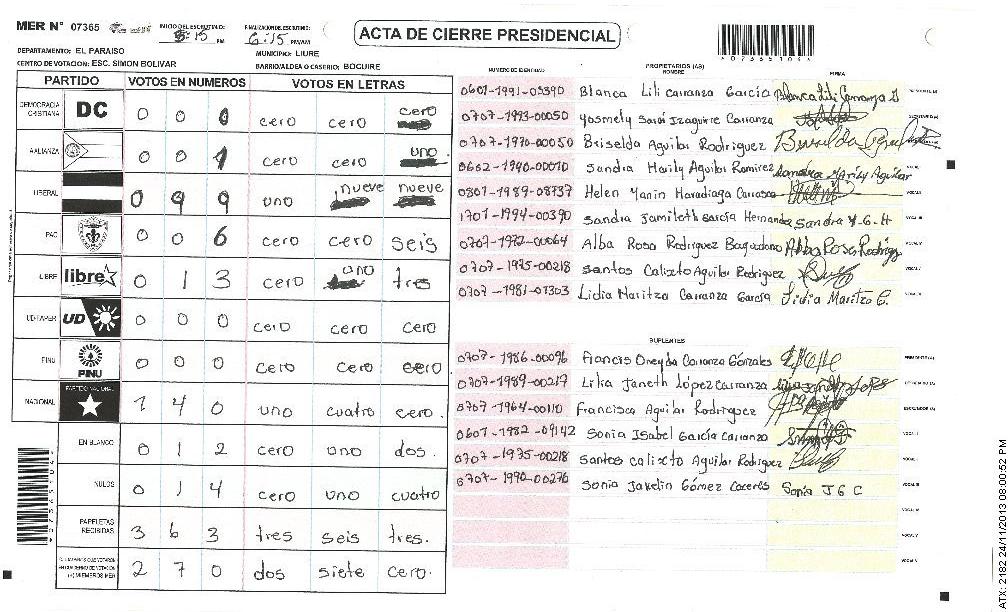 MER N° 07365 INICIO DEL ESCRUTINIO: 5:15 PM FINALIZACION DEL ESCRUTINIO: 6:15 PM/AM
ACTA DE CIERRE PRESIDENCIAL
DEPARTAMENTO: EL PARAISO MUNICIPIO: LIURE
CENTRO DE VOTACION: ESC. SIMON BOLIVAR BARRIO/ALDEA O CASERIO: BOCUIRE
PARTIDO VOTOS EN NUMEROS VOTOS EN LETRAS
DEMOCRACIA CRISTIANA DC 0 0 0 cero cero cero
ALIANZA 0 0 1 cero cero uno
LIBERAL 0 9 9 uno nueve nueve
PAC 0 0 6 cero cero seis
LIBRE libre 0 1 3 cero uno tres
UD-FAPER UD 0 0 0 cero cero cero
PINU PINU 0 0 0 cero cero cero
NACIONAL PARTIDO NACIONAL 1 4 0 uno cuatro cero.
EN BLANCO 0 1 2 cero uno dos.
NULOS 0 1 4 cero uno cuatro
PAPELETAS RECIBIDAS 3 6 3 tres seis tres.
2 7 0 dos siete cero.
NUMERO DE IDENTIDAD PROPIETARIOS (AS) NOMBRE FIRMA
0601-1991-03390 Blanca Lili Carranza García Blanca Lili Carranza G
0707-1993-00050 Yosmely Saraí Izaguirre Carranza
0707-1970-00050 Briselda Aguilar Rodriguez
0602-1990-00010 Sandra Marily Aguilar Ramirez Sandra Marily Aguilar
0801-1989-08737 Helen Yanin Haradiaga Carrasco
1701-1994-00390 Sandra Jamileth García Hernandez Sandra Y.G.H
0707-1972-00064 Alba Rosa Rodriguez Baquedano Alba Rosa Rodrig
0707-1975-00218 Santos Calixto Aguilar Rodriguez
0707-1981-01303 Lidia Maritza Carranza García Lidia Maritza C.
SUPLENTES
0707-1986-00096 Francis Oneyda Carranza Gonzales
0707-1989-00217 Lilia Janeth López Carranza
0707-1964-00110 Francisca Aguilar Rodriguez
0601-1982-09142 Sonia Isabel García Carranza
0707-1975-00218 Santos calixto Aguilar Rodriguez
0707-1990-00276 Sonia Jakelin Gómez Caceres Sonia J G C
ATX: 2182 24/11/2013 08:00:52 PM